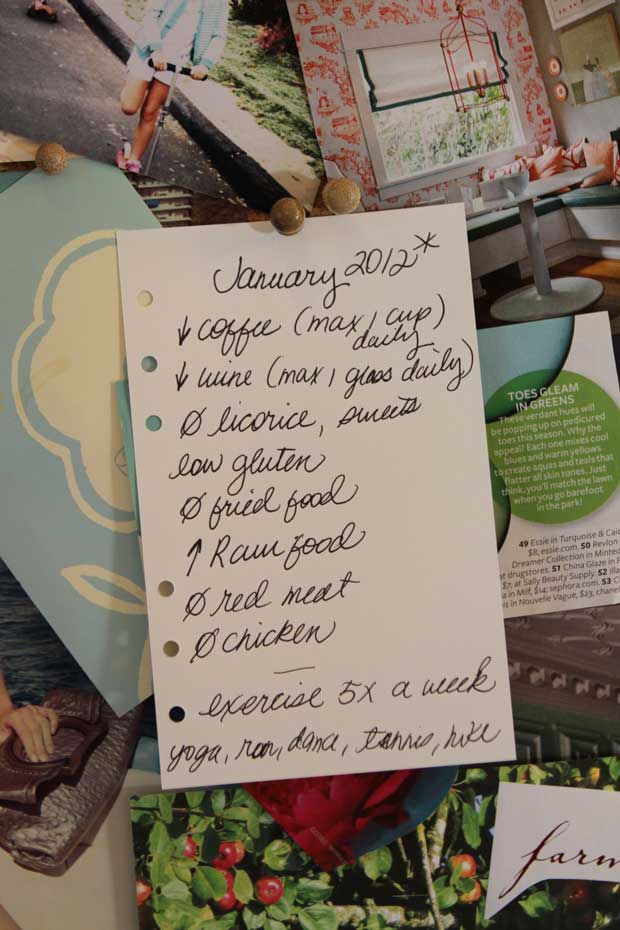 January 2012*
↓ coffee (max 1 cup
daily)
↓ wine (max 1 glass daily)
Ø licorice, sweets
low gluten
Ø fried food
↑ Raw food
Ø red meat
Ø chicken
—
exercise 5x a week
yoga, run, dance, tennis, hike
TOES GLEAM
IN GREENS
These verdant hues will
be popping up on pedicured
toes this season. Why the
appeal? Each one mixes cool
blues and warm yellows
to create aquas and teals that
flatter all skin tones. Just
think, you'll match the lawn
when you go barefoot
in the park!
49 Essie in Turquoise & Cai
$8; essie.com. 50 Revlon
Dreamer Collection in Minted
at drugstores. 51 China Glaze in F
$7; at Sally Beauty Supply. 52 Illa
a in Milf, $14; sephora.com. 53 C
is in Nouvelle Vague, $23; chanel
farm